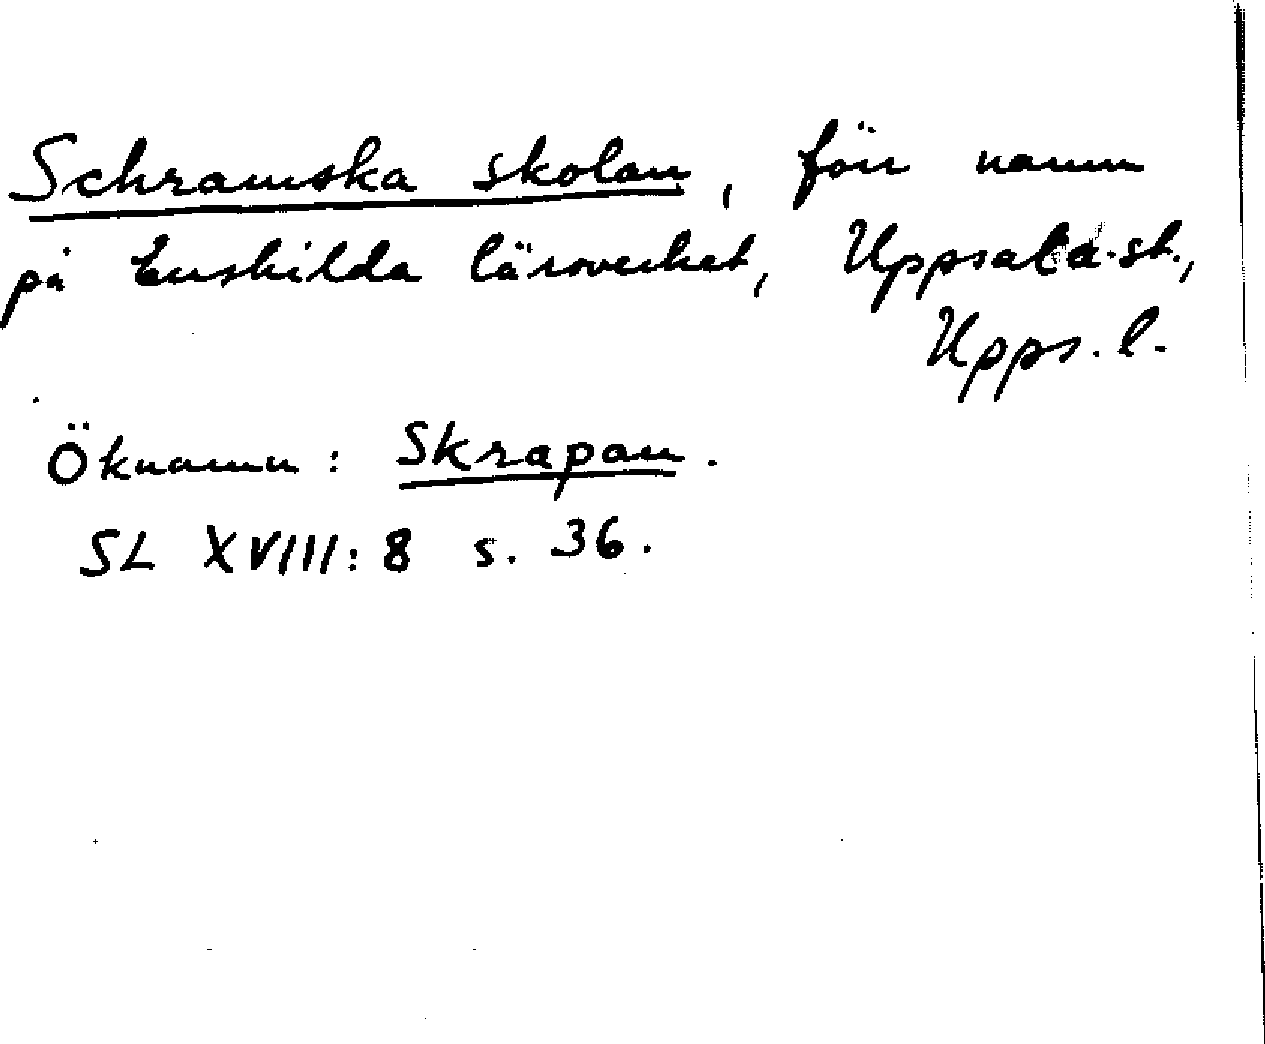 Schramska skolan, förr namn
på Enskilda läroverket, Uppsala st.,
Upps. l.
Öknamn: Skrapan.
SL XVIII:8 s. 36.